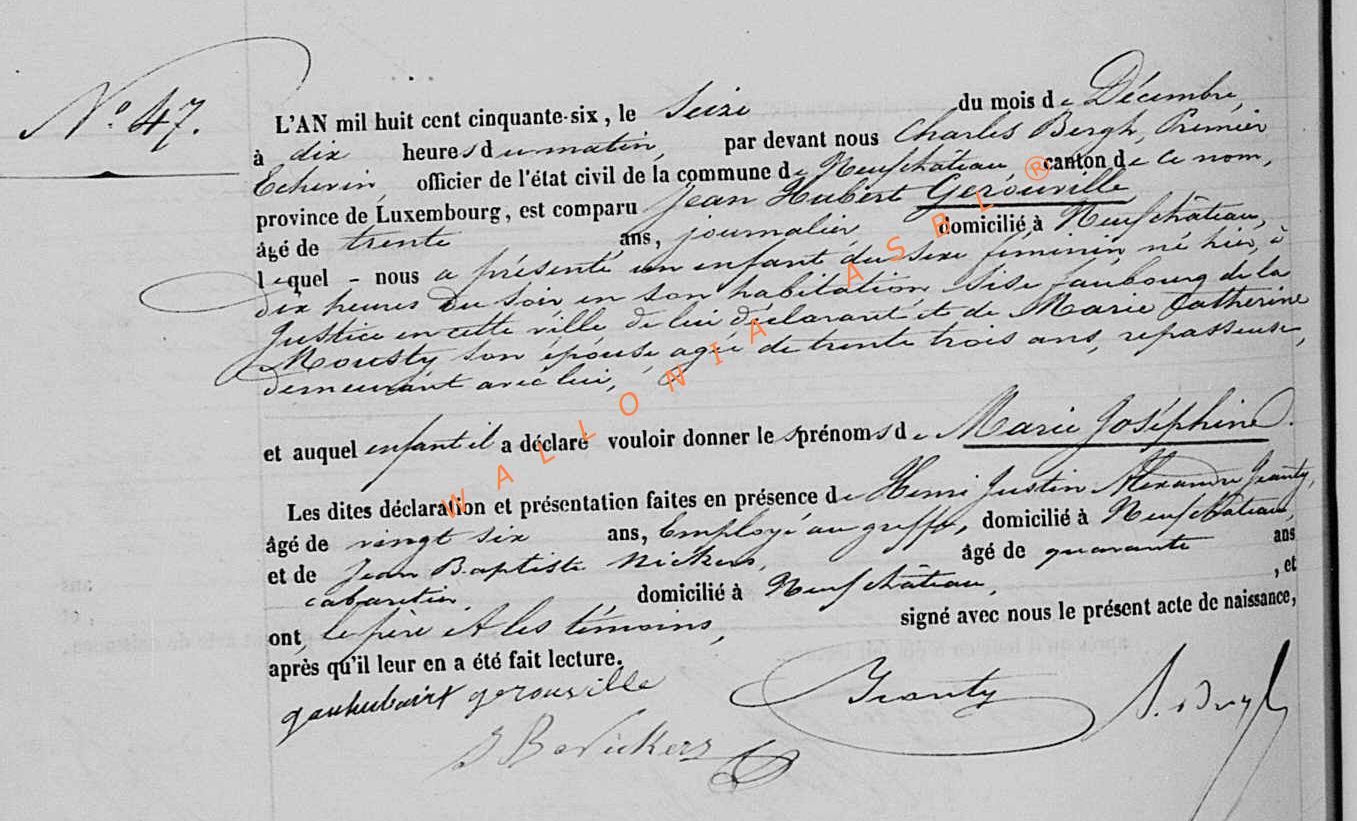 N° 47.
L'AN mil huit cent cinquante-six, le Seize du mois de Décembre,
à dix heures du matin, par devant nous Charles Bergh, Premier
Echevin, officier de l'état civil de la commune de Neufchâteau, canton de ce nom,
province de Luxembourg, est comparu Jean Hubert Gerouville
âgé de trente ans, journalier domicilié à Neufchâteau,
lequel - nous a présenté un enfant du sexe féminin, né hier, à
dix heures du soir en son habitation sise faubourg de la
Justice en cette ville de lui déclarant et de Marie Catherine
Mousty son épouse, agée de trente trois ans, repasseuse,
demeurant avec lui,
et auquel enfant il a déclaré vouloir donner les prénoms de Marie Joséphine.
Les dites déclaration et présentation faites en présence de Henri Justin Alexandre Jeanty,
âgé de vingt six ans, Employé au greffe, domicilié à Neufchâteau,
et de Jean Baptiste Nickers, âgé de quarante ans
cabaretier, domicilié à Neufchâteau, , et
ont, le père et les témoins, signé avec nous le présent acte de naissance,
après qu'il leur en a été fait lecture.
gerouville
Jeanty
J B Nickers
WALLONIA ASBL ®